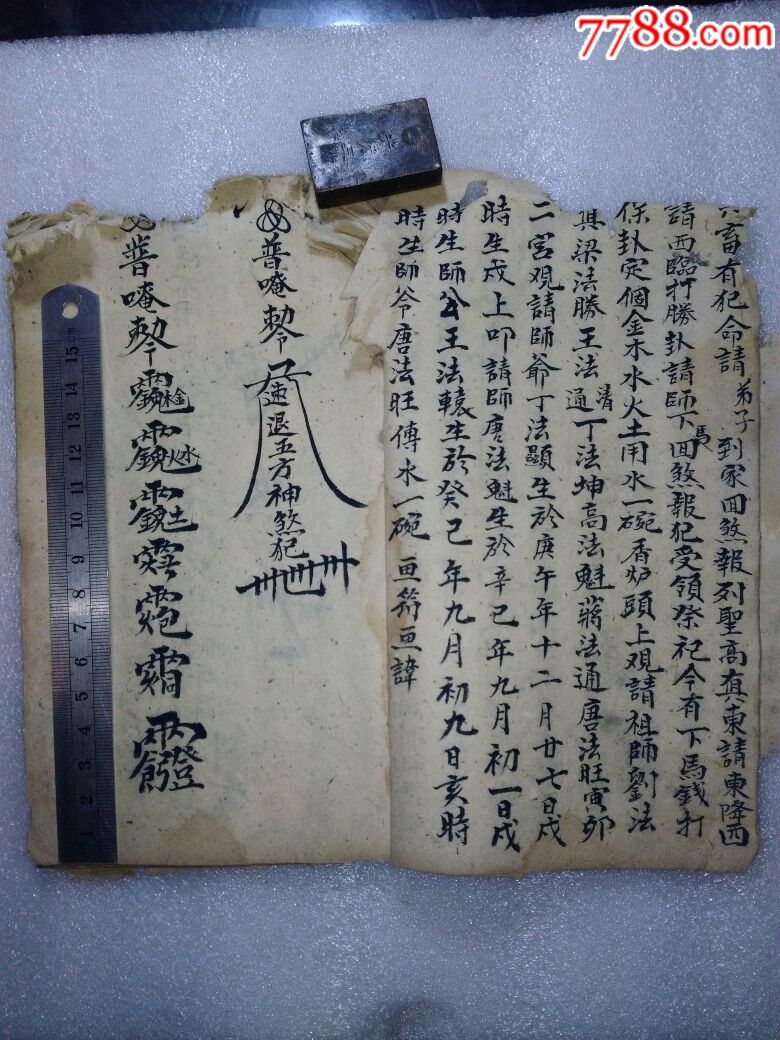 7788.com
六畜有犯命請弟子到家回煞報列聖高真東請東降西
請西臨打勝卦請師下馬回煞報犯受領祭祀今有下馬錢打
保卦定個金木水火土用水一碗香炉頭上观請祖師劉法
其梁法勝王法清通丁法坤高法魁蔣法通唐法旺寅卯
二宮观請師爺丁法顯生於庚午年十二月廿七日戌
時生戌上叩請師唐法魁生於辛巳年九月初一日戌
時生師公王法轅生於癸巳年九月初九日亥時
時生師爷唐法旺傳水一碗画符画諱
普唵勅令
速退五方神煞犯
普唵勅令
15 cm
14
13
12
11
10
9
8
7
6
5
4
3
2
1